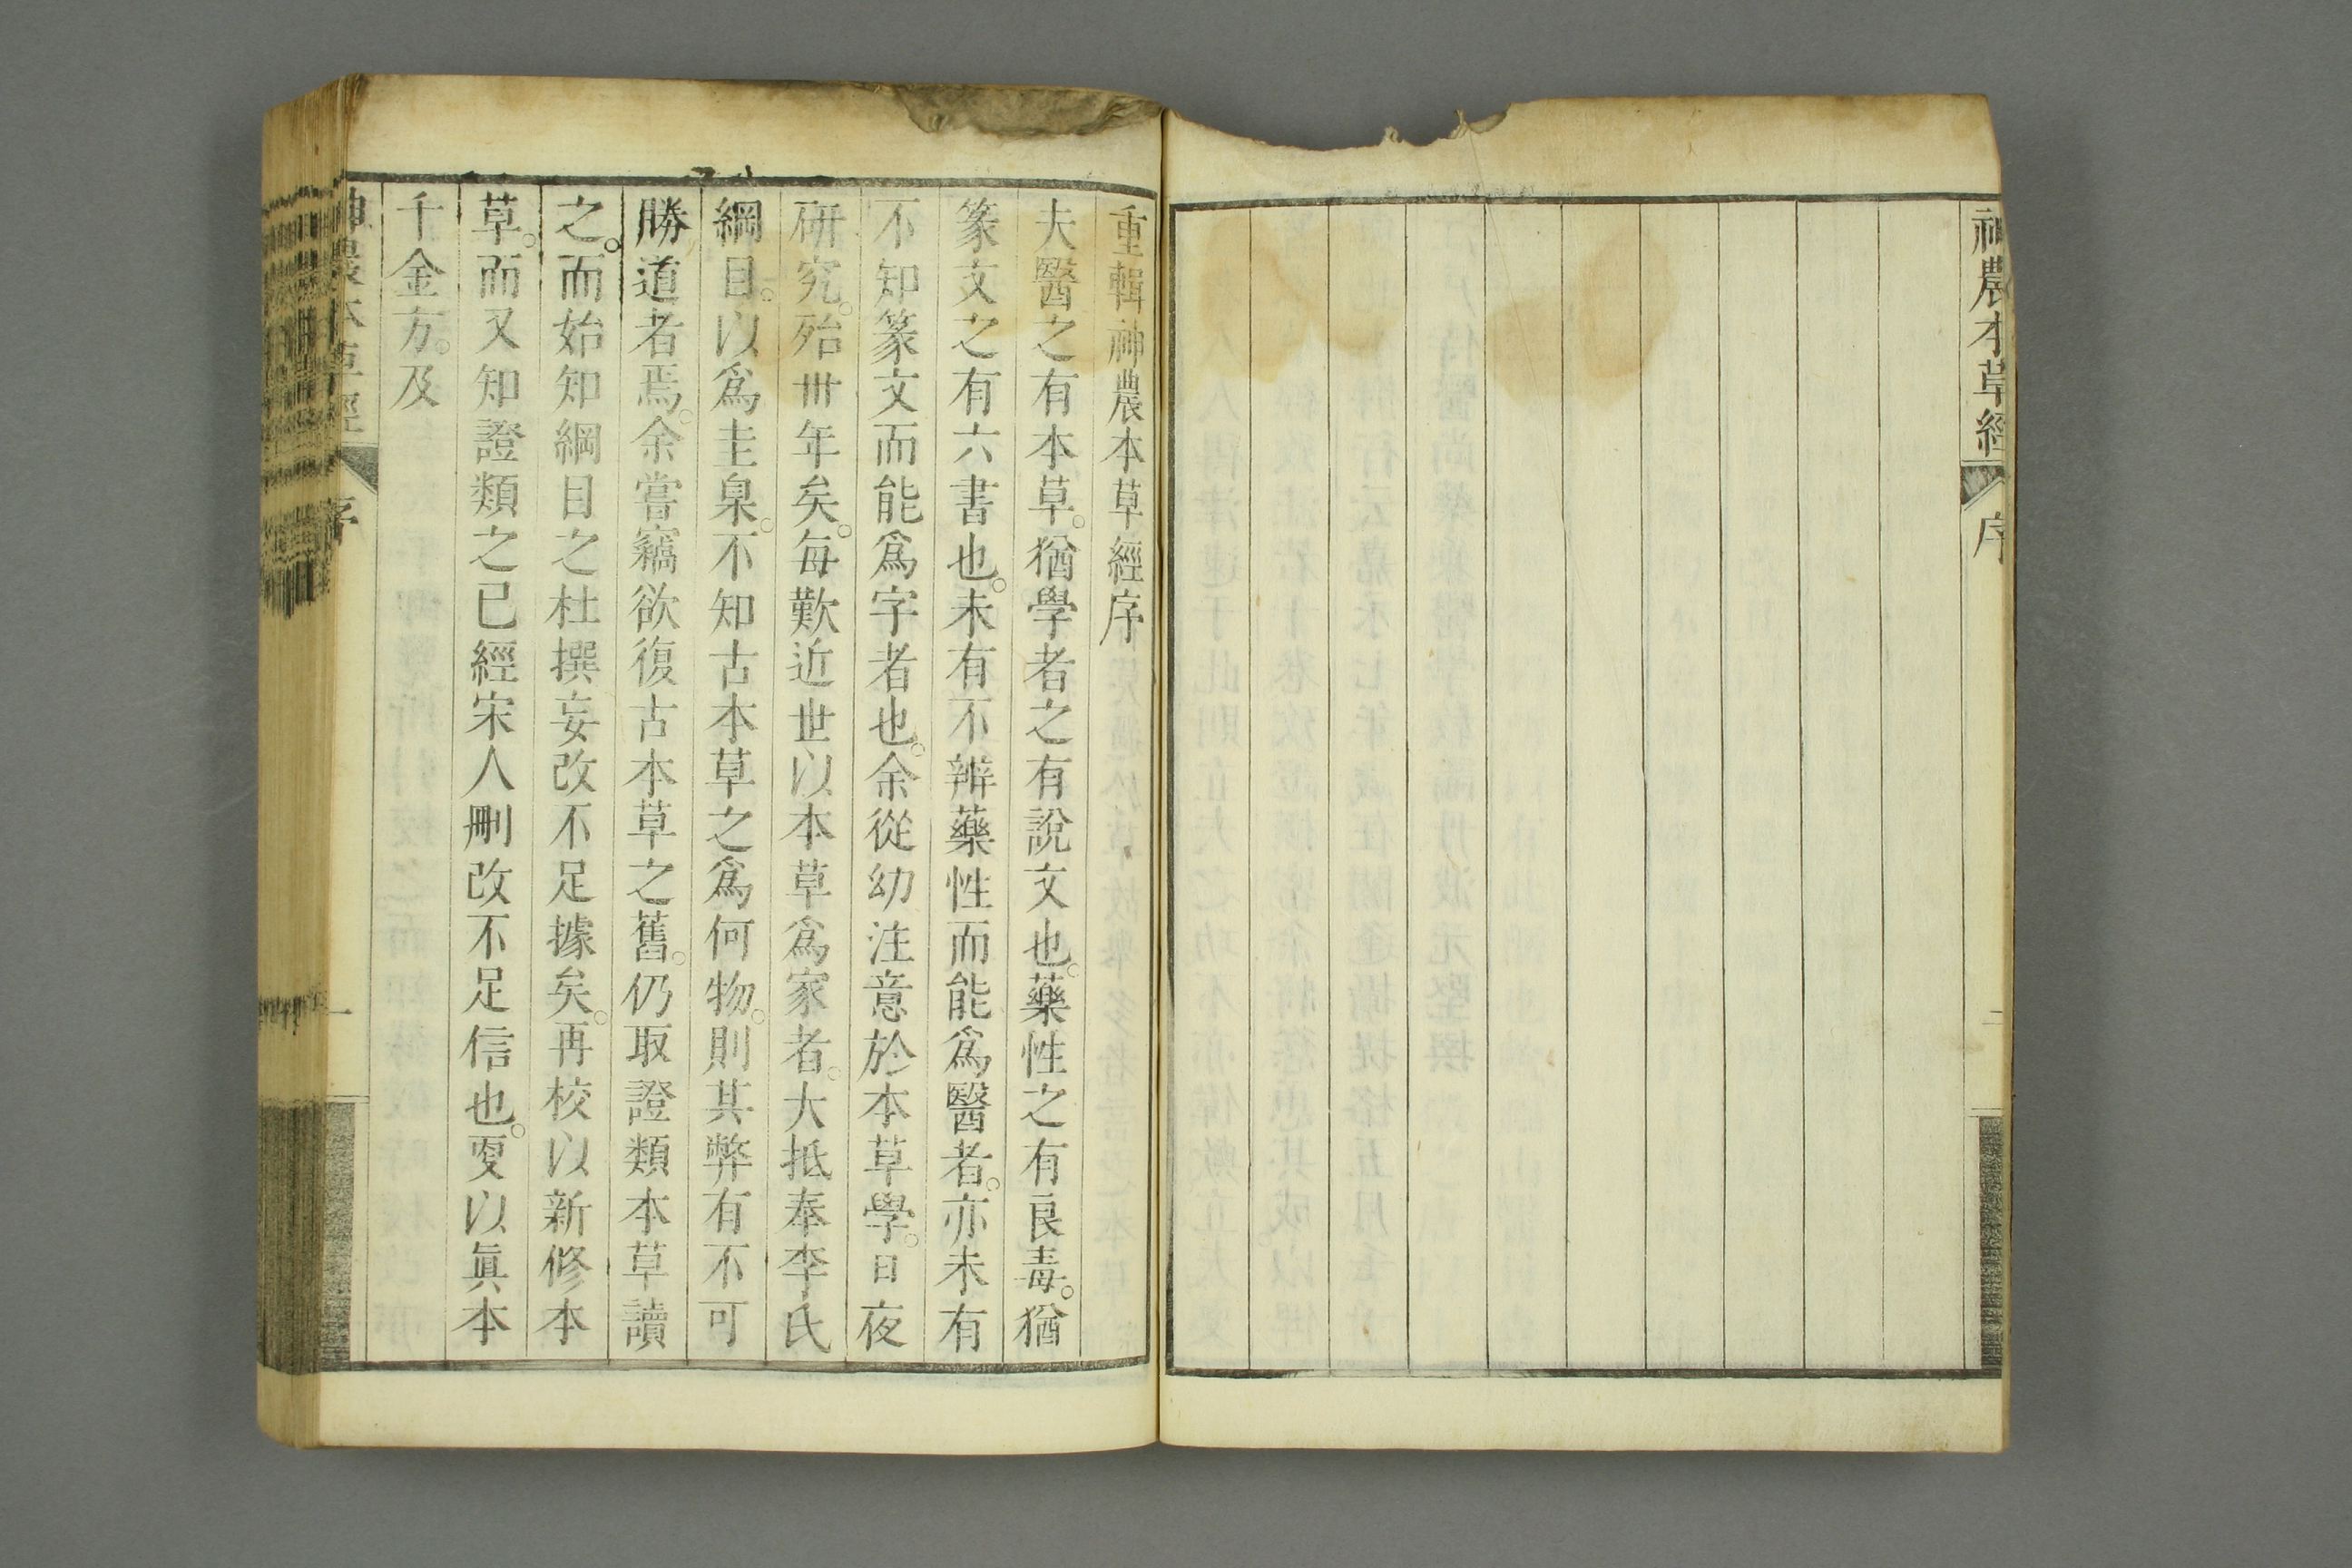 神農本草經
序
二
重輯神農本草經序
夫醫之有本草。猶學者之有說文也。藥性之有良毒。猶
篆文之有六書也。未有不辨藥性而能爲醫者。亦未有
不知篆文而能爲字者也。余從幼注意於本草學。日夜
研究。殆卅年矣。每歎近世以本草爲家者。大抵奉李氏
綱目。以爲圭臬。不知古本草之爲何物。則其弊有不可
勝道者焉。余嘗竊欲復古本草之舊。仍取證類本草讀
之。而始知綱目之杜撰妄改不足據矣。再校以新修本
草。而又知證類之已經宋人刪改不足信也。更以眞本
千金方。及
神農本草經
序
一